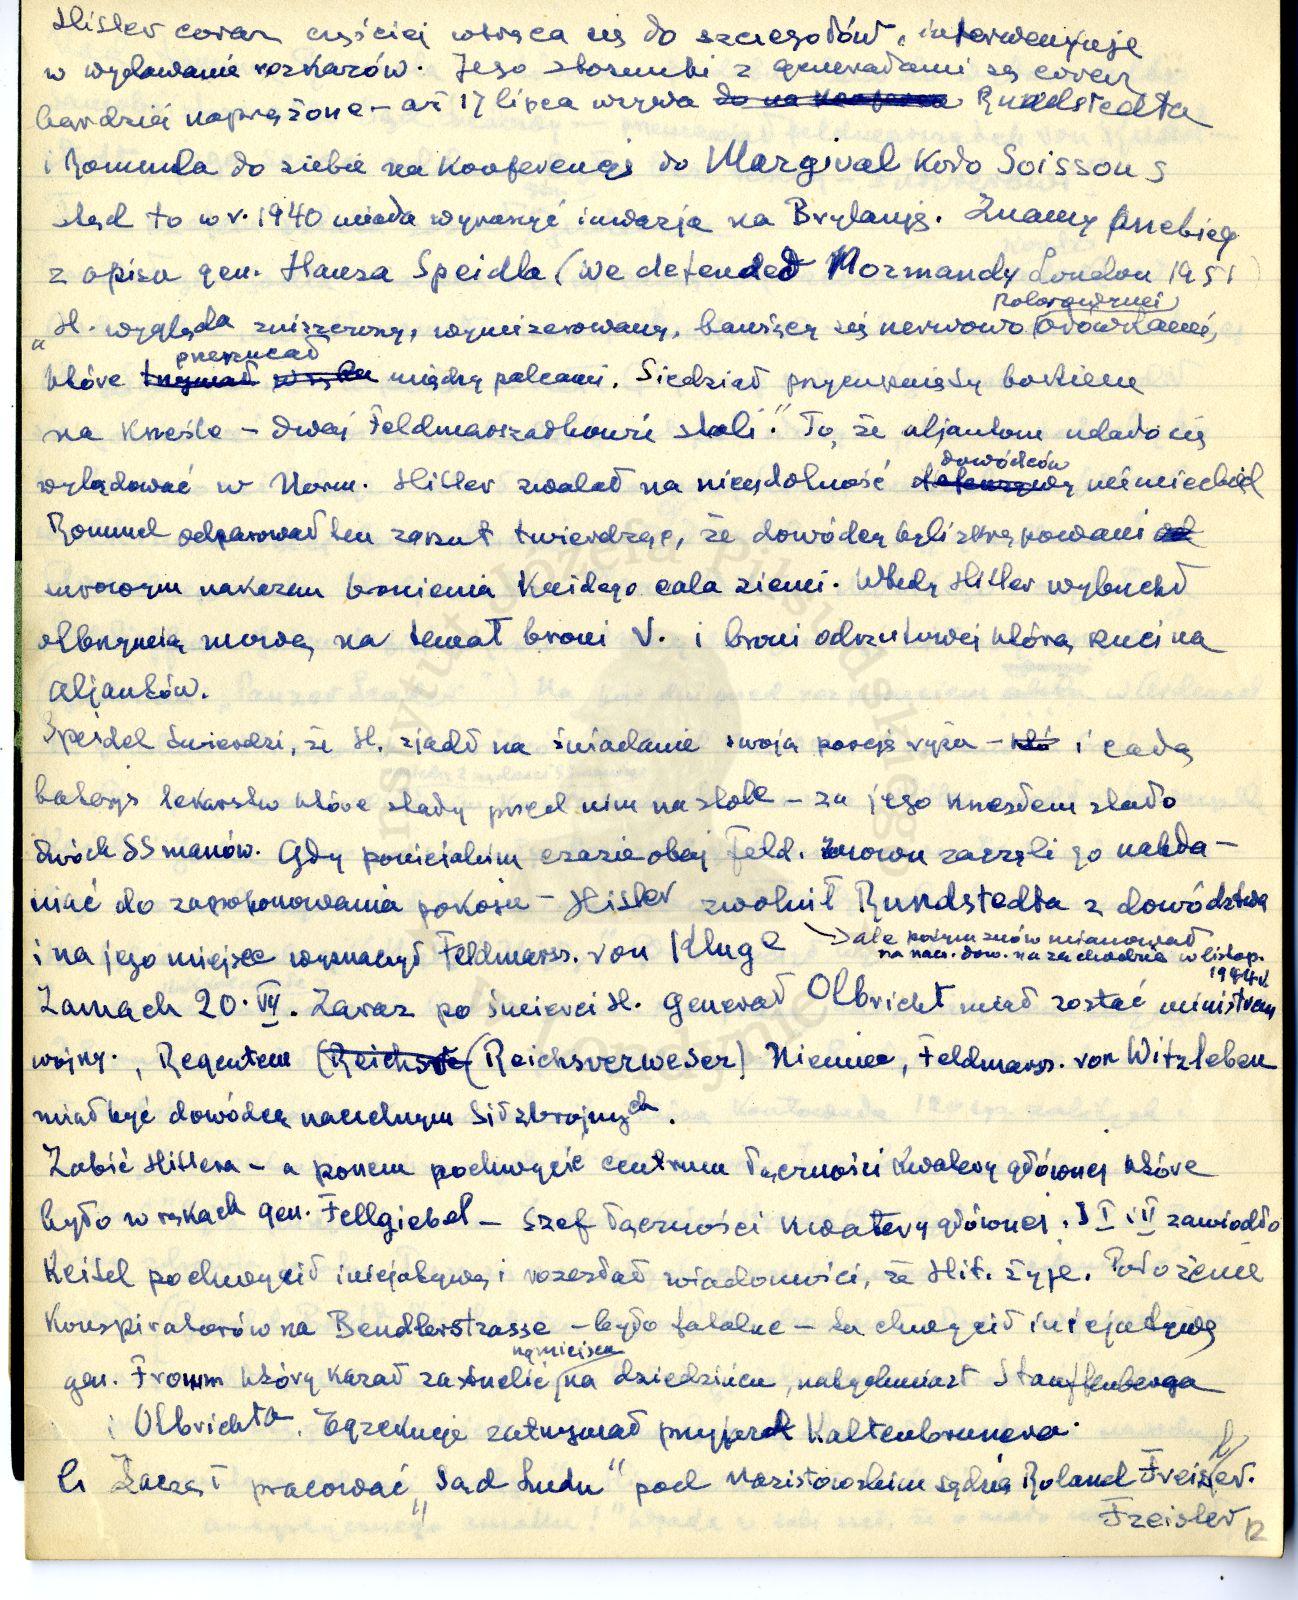 Hitler coraz częściej wtrąca się do szczegółów, interweniuje
w wydawanie rozkazów. Jego stosunki z generałami są coraz
bardziej naprężone – aż 17 lipca wzywa do na Konferen Rundstedta
i Rommla do siebie na Konferencję do Margival Koło Soissons
stąd to w r. 1940 miała wyruszyć inwazja na Brytanję. Znamy przebieg
z opisu gen. Hansa Speidla (We defended Normandy London 1951)
kolorowymi
„H. wygląda zniszczony, wymizerowany, bawiący się nerwowo ołówkami,
przerzucał
które trzymał w ręku między palcami. Siedział przycupnięty bokiem
na krześle – dwaj Feldmarszałkowie stali." To, że aljantom udało się
dowódców
wylądować w Norm. Hitler zwalał na nieudolność niemieckich
Rommel odparował ten zarzut twierdząc, że dowódcy byli skrępowani
surowym nakazem bronienia Każdego cala ziemi. Wtedy Hitler wybuchł
olbrzymią mową na temat broni V. i broni odrzutowej którą rzuci na
Aljantów.
Speidel twierdzi, że H. zjadł na śniadanie swoją porcję ryżu – któ i całą
baterję lekarstw które stały przed nim na stole – za jego krzesłem stało
dwóch SS manów. Gdy po niejakim czasie obaj feld. znowu zaczęli go nakła-
niać do zaproponowania pokoju – Hitler zwolnił Rundstedta z dowództwa
i na jego miejsce wyznaczył Feldmarsz. von Kluge → ale potym znów mianował
na nacz. dow. na zachodzie w listop.
1944 r.
Zamach 20. VII. Zaraz po śmierci H. generał Olbricht miał zostać ministrem
wojny., Regentem (Reichsve (Reichsverweser) Niemiec, Feldmarsz. von Witzleben
miał być dowódcą naczelnym Sił zbrojnych.
Zabić Hitlera – a potem pochwycić centrum łączności Kwatery głównej które
było w rękach gen. Fellgiebel – szef łączności kwatery głównej. I i II zawiodło
Keitel pochwycił inicjatywę i rozesłał wiadomości, że Hit. żyje. Położenie
Konspiratorów na Bendlerstrasse – było fatalne – tu chwycił inicjatywę
na miejscu
gen. Fromm który kazał zastrzelić na dziedzińcu, natychmiast Stauffenberga
i Olbrichta. Egzekucje zatrzymał przyjazd Kaltenbrunera.
Zaczął pracować „Sąd Ludu" pod nazistowskim sędzią Roland Freisler.
Freisler
12